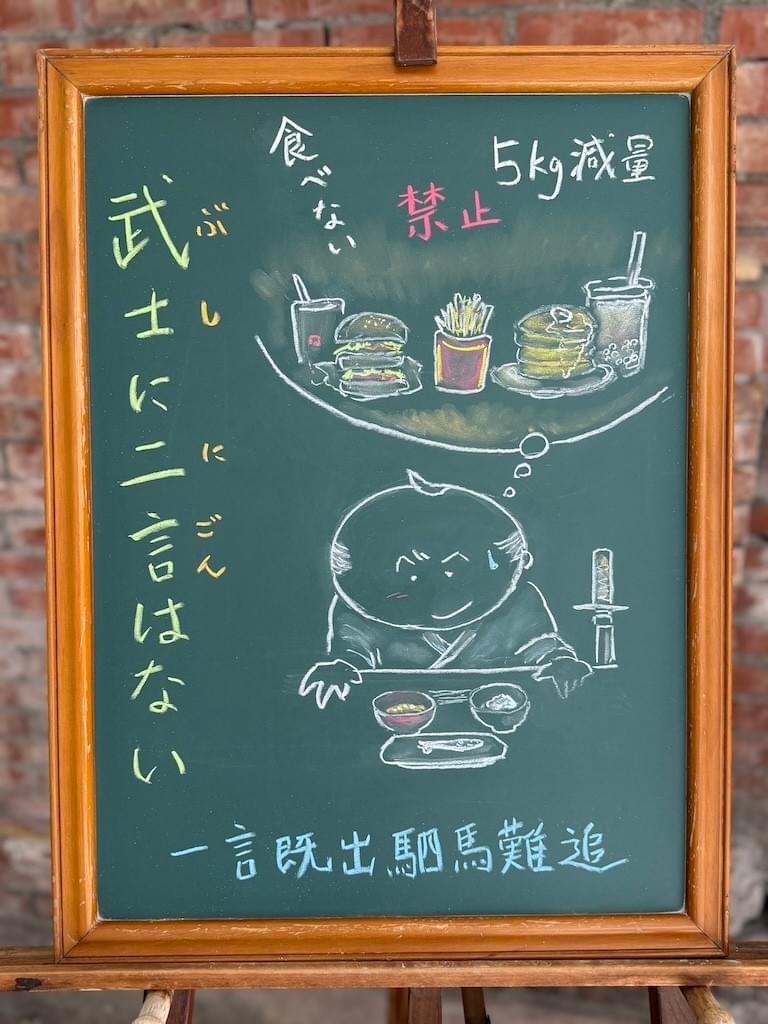 武士に二言はない
ぶし にごん
食べない
禁止
5kg減量
一言既出駟馬難追